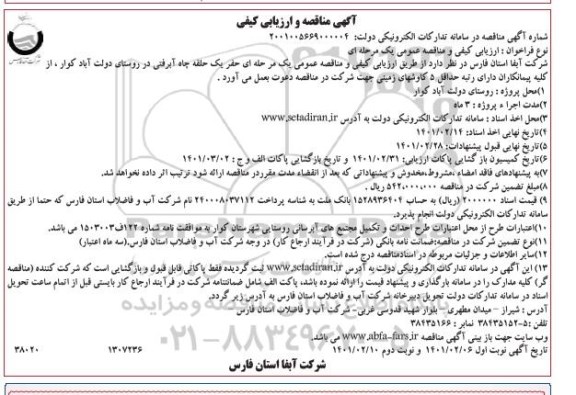 آگهی مناقصه و ارزیابی کیفی
شماره آگهی مناقصه در سامانه تدارکات الکترونیکی دولت: ۲۰۰۱۰۰۵۶۶۹۰۰۰۰۰۴
نوع فراخوان : ارزیابی کیفی و مناقصه عمومی یک مرحله ای
شرکت آبفا استان فارس در نظر دارد از طریق ارزیابی کیفی و مناقصه عمومی یک مر حله ای حفر یک حلقه چاه آبرفتی در روستای دولت آباد کوار ، از
کلیه پیمانکاران دارای رتبه حداقل ۵ کاوشهای زمینی جهت شرکت در مناقصه دعوت بعمل می آورد .
۱)محل پروژه : روستای دولت آباد کوار
۲)مدت اجرا ء پروژه : ۳ ماه
۳)محل اخذ اسناد : سامانه تدارکات الکترونیکی دولت به آدرس www.setadiran.ir
۴)تاریخ نهایی اخذ اسناد: ۱۴۰۱/۰۲/۱۴
۵)تاریخ نهایی قبول پیشنهادات: ۱۴۰۱/۰۲/۲۸
۶)تاریخ کمیسیون باز گشایی پاکات ارزیابی: ۱۴۰۱/۰۲/۳۱ و تاریخ بازگشایی پاکات الف و ج : ۱۴۰۱/۰۳/۰۲
۷)به پیشنهادهای فاقد امضاء ،مشروط،مخدوش و پیشنهاداتی که بعد از انقضاء مدت مقرردر مناقصه ارائه شود ترتیب اثر داده نخواهد شد.
۸)مبلغ تضمین شرکت در مناقصه ۵۴۲۰۰۰۰۰۰ ریال .
۹) قیمت اسناد ۲۰۰۰۰۰۰ (ریال) به حساب ۱۵۲۸۹۳۶۲۰۴ بانک ملت به شناسه پرداخت ۲۴۰۰۰۸۰۳۷۱۱۲ نام شرکت آب و فاضلاب استان فارس که حتما از طریق
سامانه تدارکات الکترونیکی دولت انجام پذیرد.
۱۰)اعتبارات طرح از محل اعتبارات طرح احداث و تکمیل مجتمع های آبرسانی روستایی شهرستان کوار به موافقت نامه شماره ۱۲۲ف۱۵۰۳۰۰۳ می باشد.
۱۱)نوع تضمین شرکت در مناقصه:ضمانت نامه بانکی (شرکت در فرآیند ارجاع کار) در وجه شرکت آب و فاضلاب استان فارس.(سه ماه اعتبار)
۱۲)سایر اطلاعات و جزئیات مربوطه در اسنادمناقصه درج شده است.
۱۳) این آگهی در سامانه تدارکات الکترونیکی دولت به آدرس www.setadiran.ir ثبت گردیده فقط پاکاتی قابل قبول و بازگشایی است که شرکت کننده (مناقصه
گر) کلیه مدارک را در سامانه بارگذاری و پیشنهاد قیمت را ارائه نموده باشد، پاکت الف شامل ضمانتنامه شرکت در فرآیند ارجاع کار بایستی قبل از اتمام ساعت تحویل
اسناد در سامانه تدارکات دولت تحویل دبیرخانه شرکت آب و فاضلاب استان فارس به آدرس زیر گردد.
آدرس : شیراز – میدان مطهری – بلوار شهید قدوسی غربی – شرکت آب و فاضلاب استان فارس
تلفن :۵-۳۸۴۳۵۱۵۲ نمابر : ۳۸۴۳۵۱۶۶
وب سایت جهت باز بینی آگهی مناقصه www.abfa-fars.ir می باشد.
تاریخ آگهی نوبت اول ۱۴۰۱/۰۲/۰۶ و نوبت دوم ۱۴۰۱/۰۲/۱۰
۱۳۰۷۲۳۶
۳۸۰۲۰
شرکت آبفا استان فارس
۰۲۱-۸۸۳۴۹۶۷۰